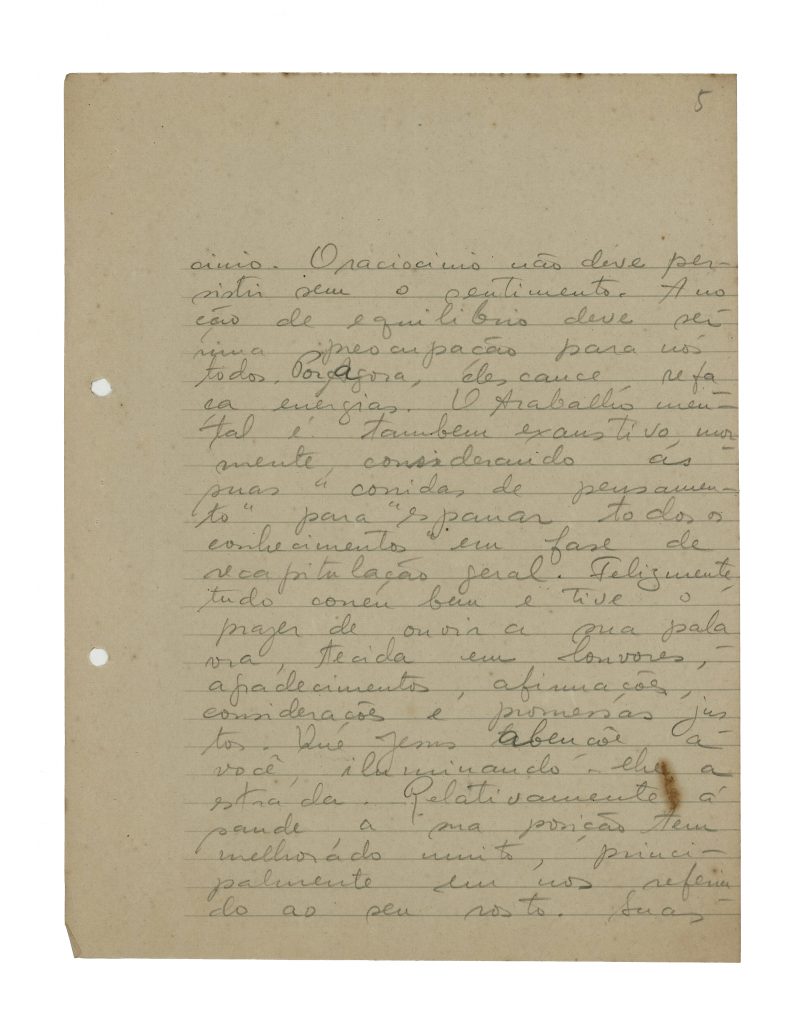 5
cinio. O raciocinio não deve per-
sistir sem o sentimento. A no
ção de equilibrio deve ser
uma preocupação para nós
todos. Por agora, descance, refa
ça energias. O trabalho men-
tal é tambem exaustivo, mor
mente, considerando ás
suas "corridas de pensamen-
to" para "espanar todos os
conhecimentos" em fase de
recapitulação geral. Felizmente,
tudo correu bem e tive o
prazer de ouvir a sua pala
vra, tecida em louvores,
agradecimentos, afirmações,
considerações e promessas jus
tos. Que Jesus abençõe á
você, iluminando-lhe a
estrada. Relativamente á
saude a sua posição tem
melhorádo muito, princi-
palmente em nos referin
do ao seu rosto. Suas